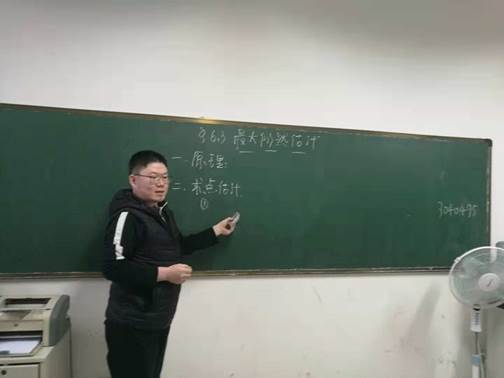 §6.3 最大似然估计
一.原理:
二.求点估计
①
3040495